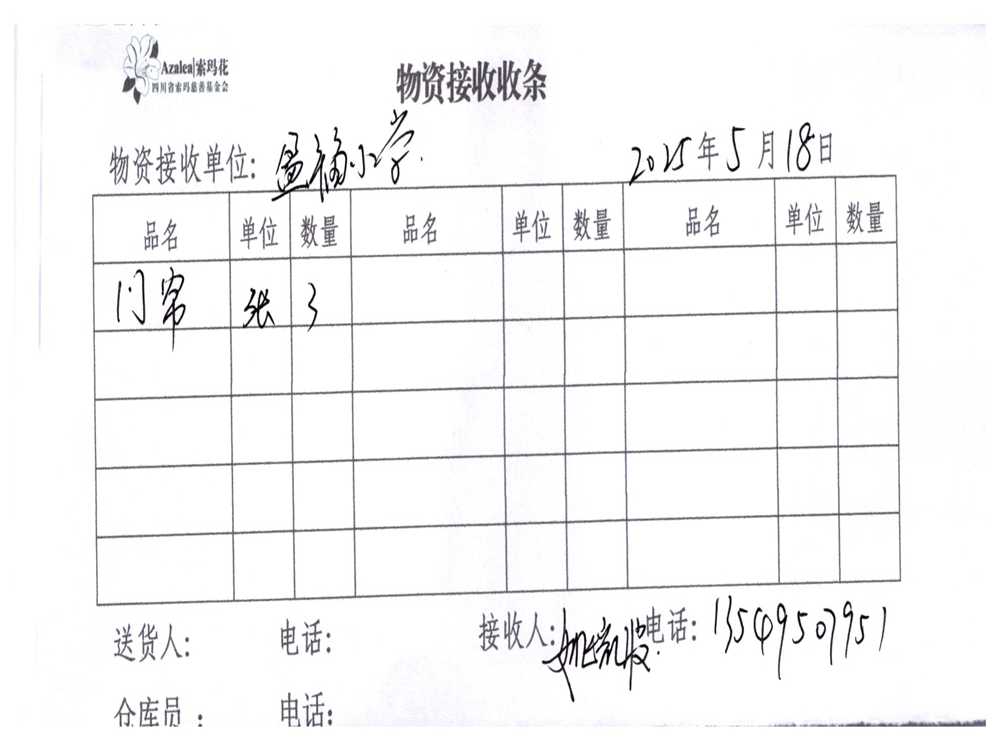 Azalea|索玛花
四川省索玛慈善基金会
物资接收收条
物资接收单位: 孟福小学. 2025年5月18日
品名 单位 数量 品名 单位 数量 品名 单位 数量
门帘 张 3
送货人: 电话: 接收人: 电话: 13549507951
仓库员 : 电话: